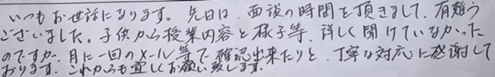 いつもお世話になります。先日は、面談の時間を頂きまして、有難う
ございました。子供から授業内容と様子等、詳しく聞けていなかった
のですが、月に一回のメール等で確認出来たりと、丁寧な対応に感謝して
おります。これからも宜しくお願い致します。